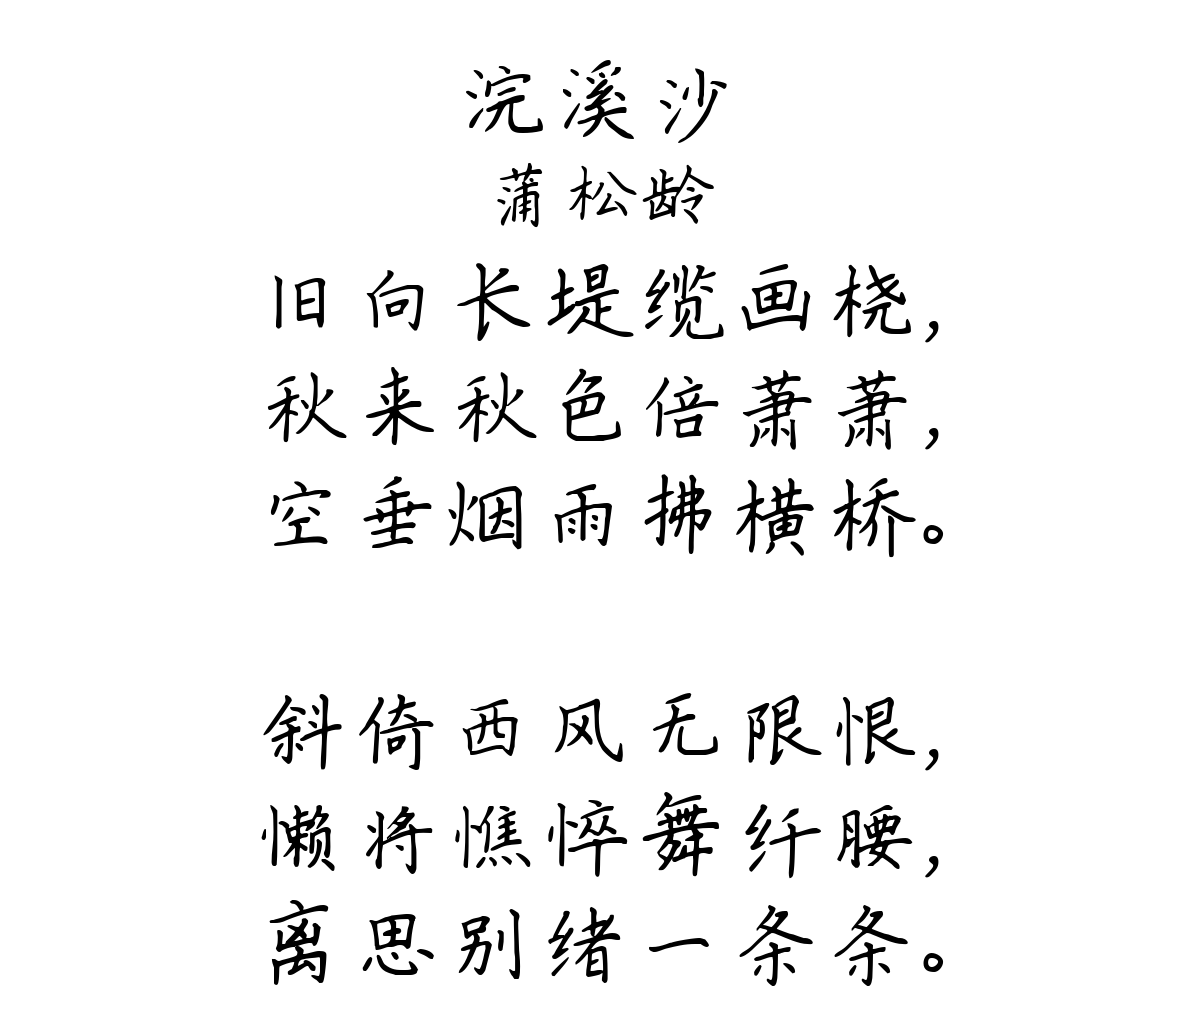 浣溪沙
蒲松龄
旧向长堤缆画桡,
秋来秋色倍萧萧,
空垂烟雨拂横桥。
斜倚西风无限恨,
懒将憔悴舞纤腰,
离思别绪一条条。